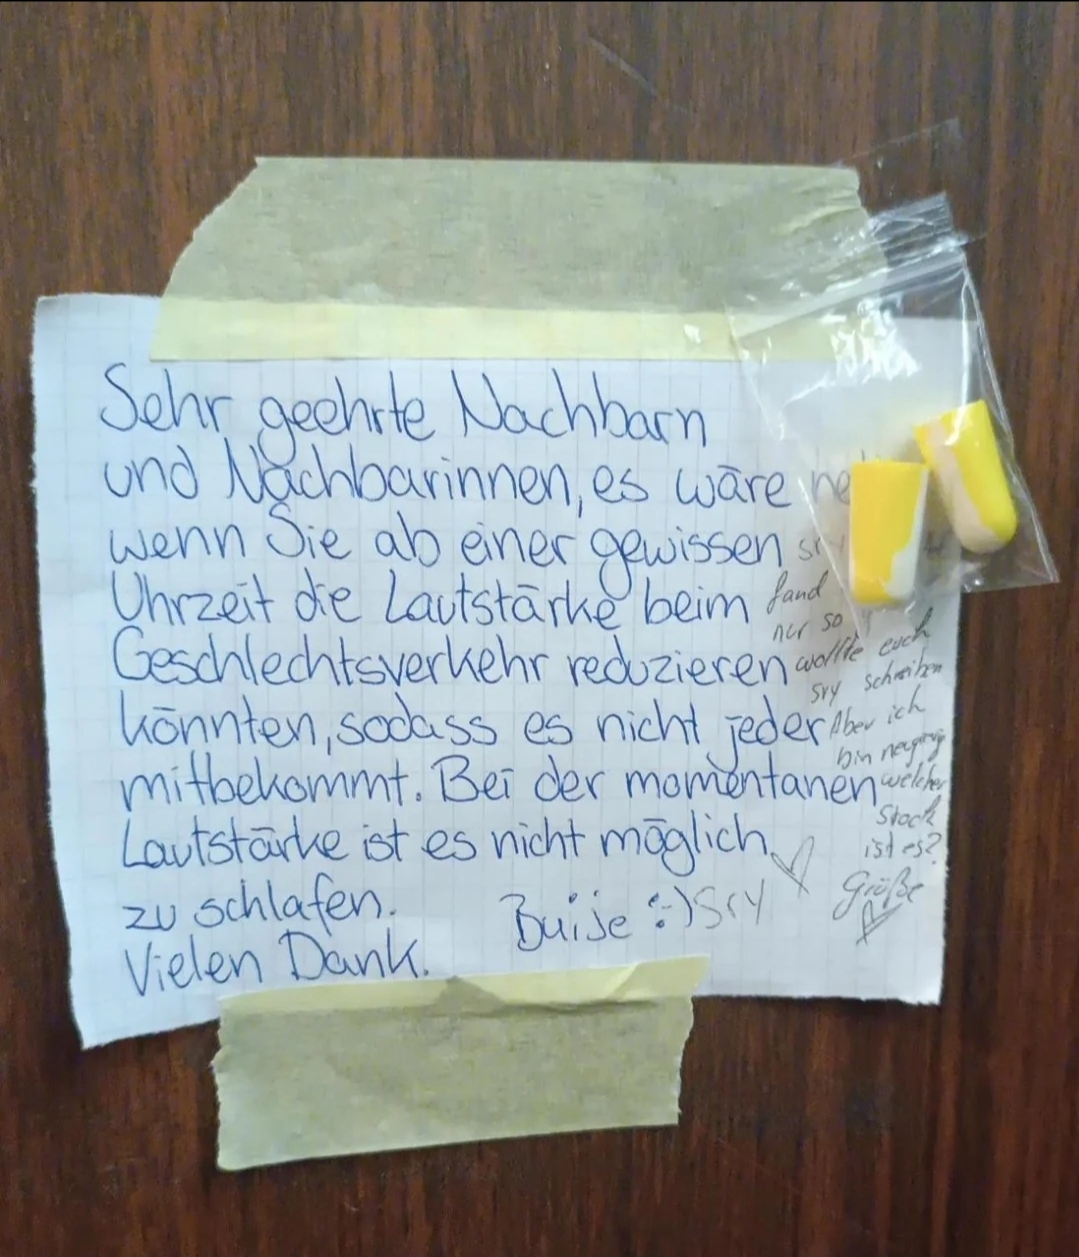 Sehr geehrte Nachbarn
und Nachbarinnen, es wäre
wenn Sie ab einer gewissen
Uhrzeit die Lautstärke beim
Geschlechtsverkehr reduzieren
könnten, sodass es nicht jeder
mitbekommt. Bei der momentanen
Lautstärke ist es nicht möglich
zu schlafen.
Vielen Dank.
Buije :-) Sry
fand
nur so
wollte euch
sry schreiben
Aber ich
bin neugierig
welcher
Stock
ist es?
Grüße